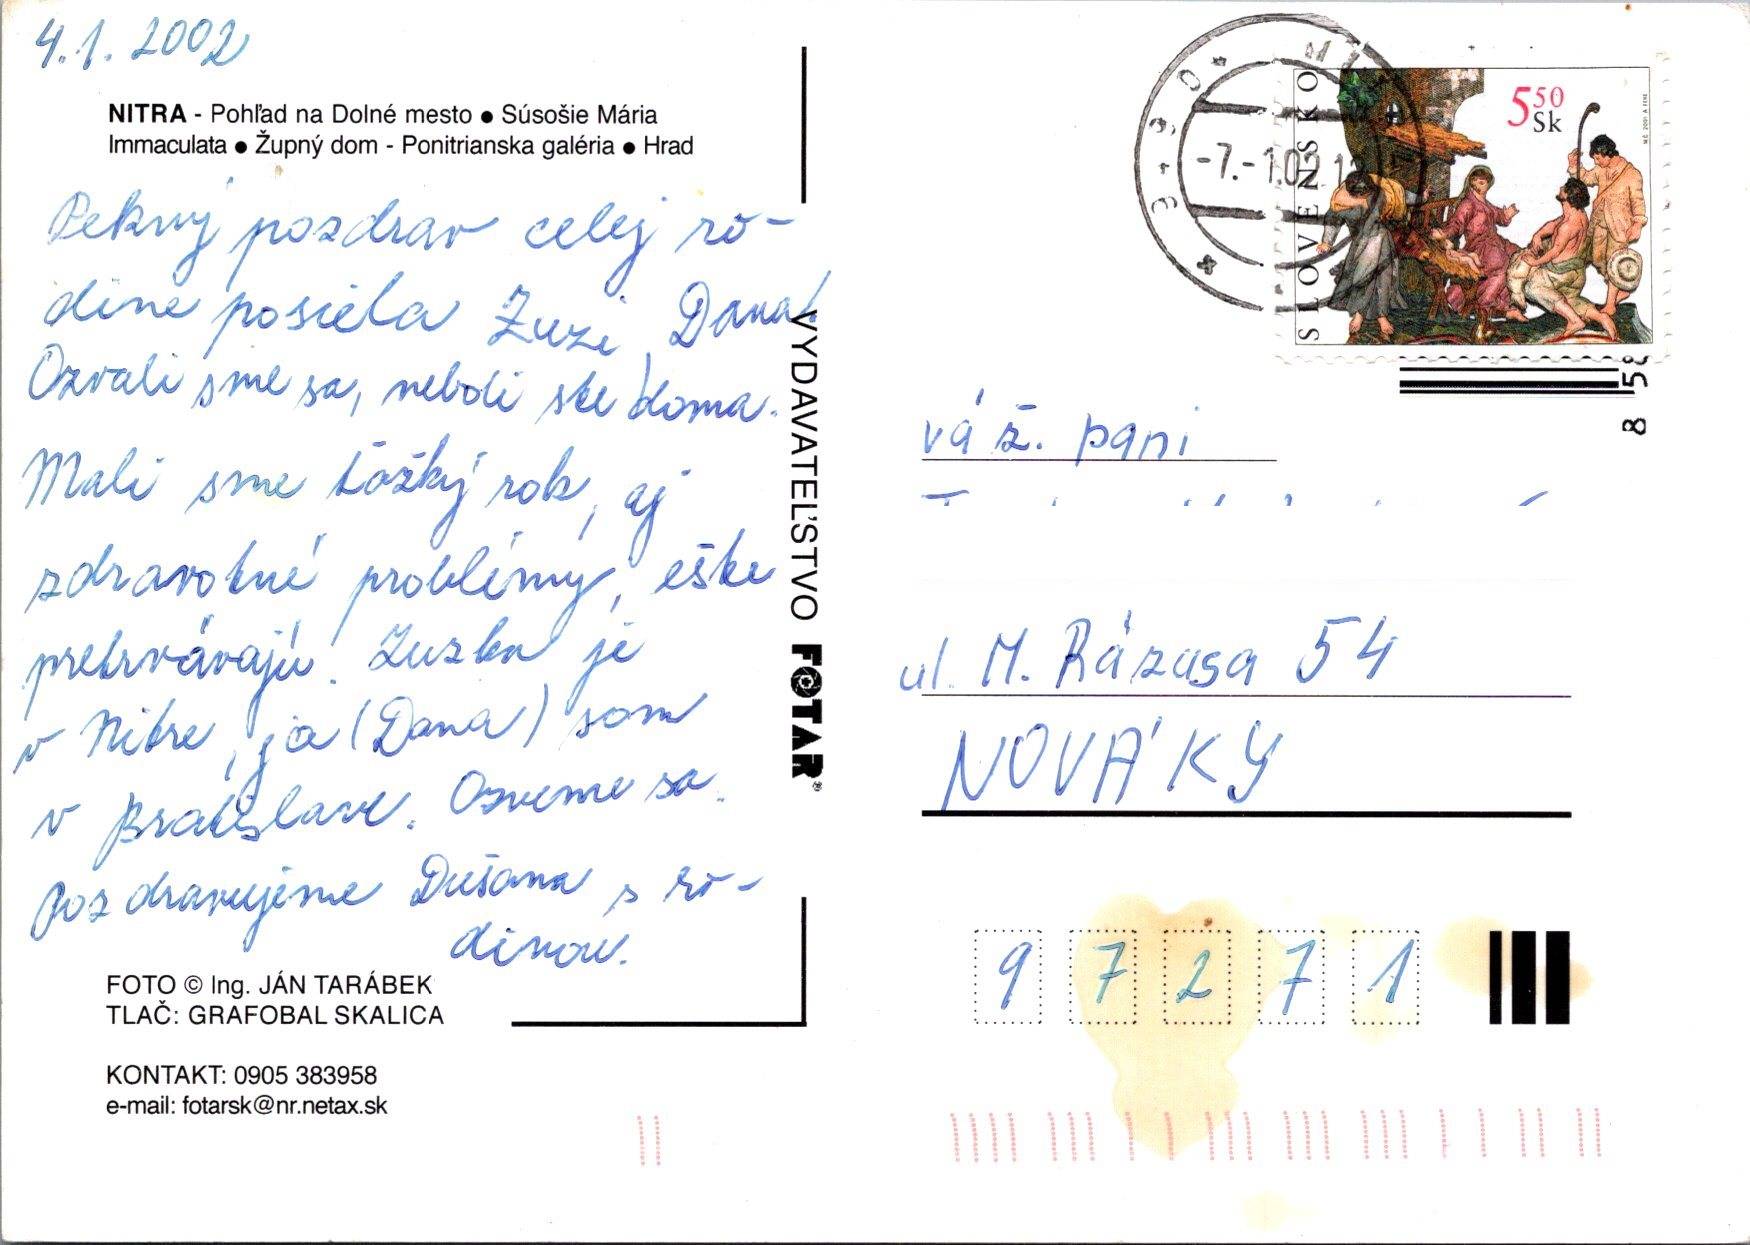 4.1. 2002
NITRA - Pohľad na Dolné mesto ● Súsošie Mária
Immaculata ● Župný dom - Ponitrianska galéria ● Hrad
Pekný pozdrav celej ro-
dine posiela Zuzi Dana!
Ozvali sme sa, neboli ste doma.
Mali sme ťažký rok, aj
zdravotné problémy, ešte
pretrvávajú. Zuzka je
v Nitre, ja (Dana) som
v Bratislave. Ozveme sa.
Pozdravujeme Dušana s ro-
dinou.
FOTO © Ing. JÁN TARÁBEK
TLAČ: GRAFOBAL SKALICA
KONTAKT: 0905 383958
e-mail: fotarsk@nr.netax.sk
VYDAVATEĽSTVO FOTAR®
-7.-1.02.1
SLOVENSKO
5 50
Sk
8 58
váž. pani
ul. M. Rázusa 54
NOVÁKY
97271